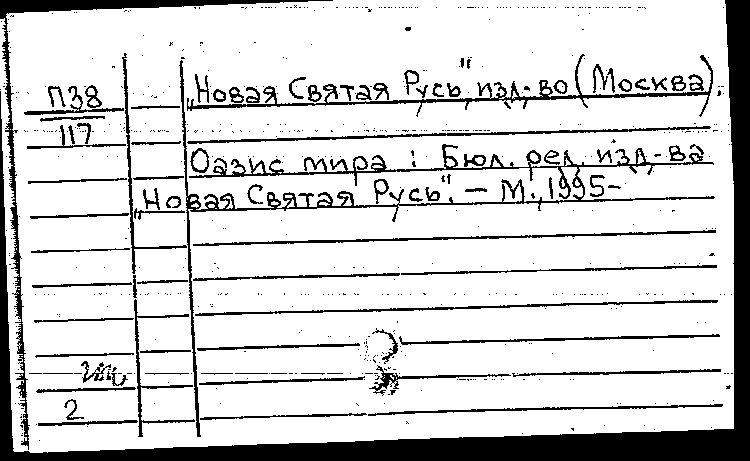 П38
117
„Новая Святая Русь", изд-во (Москва).
Оазис мира : Бюл. ред. изд-ва
„Новая Святая Русь". — М., 1995-
2